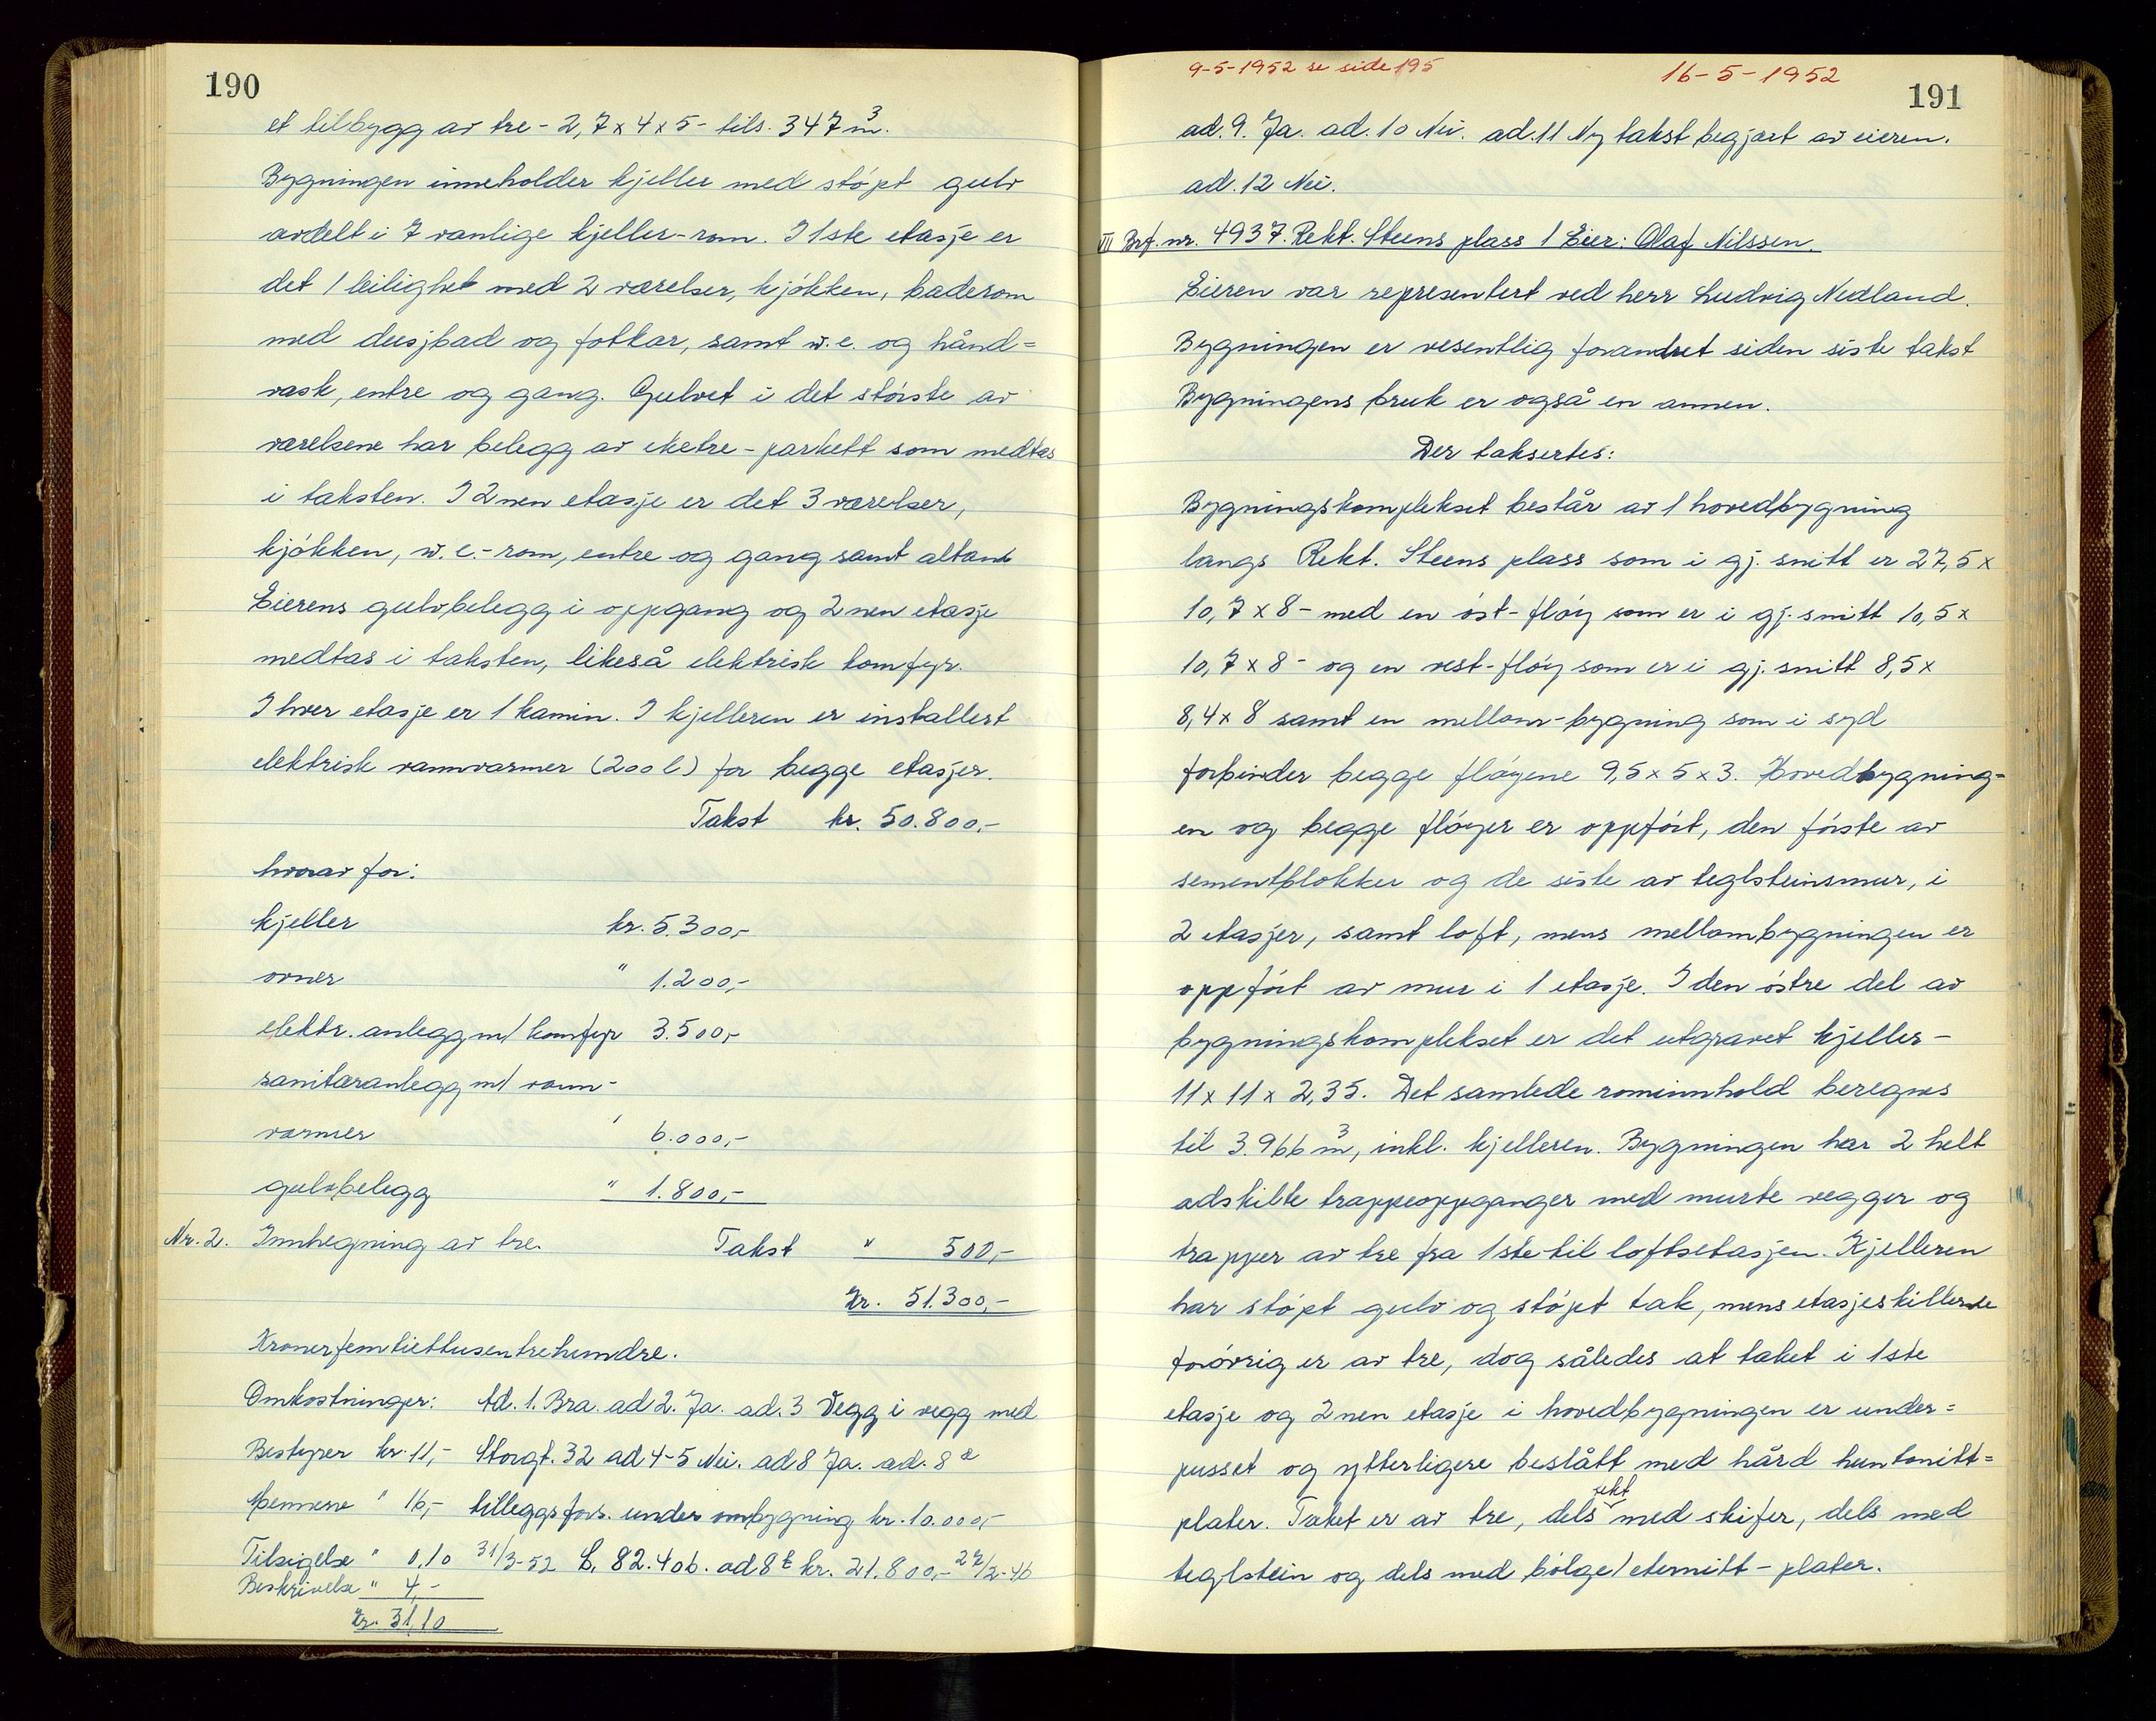 190
et tilbygg av tre - 2,7 x 4 x 5 - tils. 347 m³.
Bygningen inneholder kjeller med støpt gulv
avdelt i 7 vanlige kjeller-rom. I 1ste etasje er
det 1 leilighet med 2 værelser, kjøkken, baderom
med dusjbad og fotkar, samt w.c. og hånd=
vask, entre og gang. Gulvet i det største av
værelsene har belegg av eketre-parkett som medtas
i taksten. I 2nen etasje er det 3 værelser,
kjøkken, w.c.-rom, entre og gang samt altan
Eierens gulvbelegg i oppgang og 2nen etasje
medtas i taksten, likeså elektrisk komfyr.
I hver etasje er 1 kamin. I kjelleren er installert
elektrisk vannvarmer (200 l) for begge etasjer.
Takst kr. 50.800,-
hvorav for:
kjeller kr. 5.300,-
ovner " 1.200,-
elektr. anlegg m/ komfyr 3.500,-
sanitæranlegg m/ vann-
varmer " 6.000,-
gulvbelegg " 1.800,-
Nr. 2. Innhegning av tre. Takst " 500,-
Kr. 51.300,-
Kronerfemtiettusentrehundre.
Omkostninger: Ad. 1. Bra. ad 2. Ja. ad. 3 Vegg i vegg med
Bestyrer kr. 11,- Storgt. 32 ad 4-5 Nei. ad 8 Ja. ad. 8 a
Mennene " 16,- tilleggsfors. under ombygning kr. 10.000,-
Tilsigelse " 0,10 31/3-52 L. 82.406. ad 8 b kr. 21.800,- 22/2-46
Beskrivelse " 4,-
Kr. 31,10
9-5-1952 se side 195
16-5-1952
191
ad. 9. Ja. ad. 10 Nei. ad. 11 Ny takst begjært av eieren.
ad. 12 Nei.
VII Brf. nr. 4937. Rekt. Steens plass 1 Eier: Olaf Nilssen.
Eieren var representert ved herr Ludvig Nedland.
Bygningen er vesentlig forandret siden siste takst
Bygningens bruk er også en annen.
Der taksertes:
Bygningskomplekset består av 1 hovedbygning
langs Rekt. Steens plass som i gj. snitt er 27,5 x
10,7 x 8 - med en øst-fløy som er i gj. snitt 10,5 x
10,7 x 8 - og en vest-fløy som er i gj. snitt 8,5 x
8,4 x 8 samt en mellom-bygning som i syd
forbinder begge fløyene 9,5 x 5 x 3. Hovedbygning=
en og begge fløyer er oppført, den første av
sementblokker og de siste av teglsteinsmur, i
2 etasjer, samt loft, mens mellombygningen er
oppført av mur i 1 etasje. I den østre del av
bygningskomplekset er det utgravet kjeller -
11 x 11 x 2,35. Det samlede rominnhold beregnes
til 3.966 m³, inkl. kjelleren. Bygningen har 2 helt
adskilte trappeoppganger med murte vegger og
trapper av tre fra 1ste til loftsetasjen. Kjelleren
har støpt gulv og støpt tak, mens etasjeskillerste
forøvrig er av tre, dog således at taket i 1ste
etasje og 2nen etasje i hovedbygningen er under=
pusset og ytterligere beslått med hård huntonitt=
plater. Taket er av tre, dels tekt med skifer, dels med
teglstein og dels med bølge/eternitt-plater.